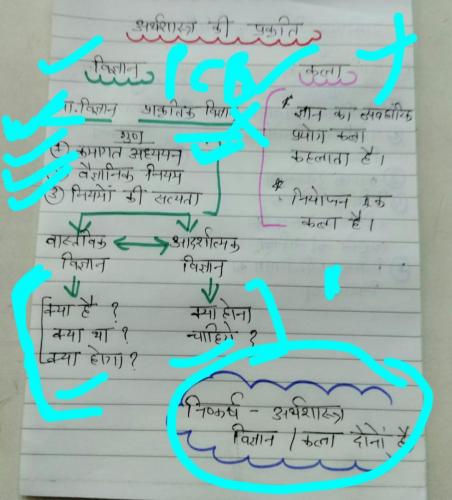 अर्थशास्त्र की प्रकृति
विज्ञान
PCB
कला
सा. विज्ञान प्राकृतिक विज्ञान
गुण
① क्रमागत अध्ययन
② वैज्ञानिक नियम
③ नियमों की सत्यता
* ज्ञान का व्यवहारिक
प्रयोग कला
कहलाता है।
* नियोजन एक
कला है।
वास्तविक
विज्ञान
आदर्शात्मक
विज्ञान
क्या है ?
क्या था ?
क्या होगा ?
क्या होना
चाहिये ?
निष्कर्ष - अर्थशास्त्र
विज्ञान / कला दोनों है